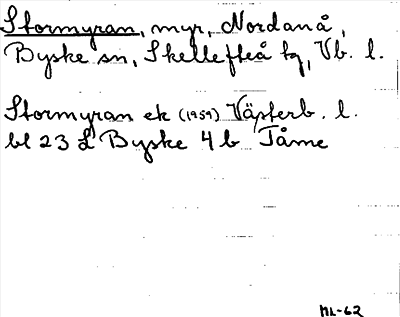 Stormyran, myr, Nordanå,
Byske sn, Skellefteå tg, Vb. l.
Stormyran ek (1959) Västerb. l.
bl 23 L Byske 4 b Tåme
ML-62